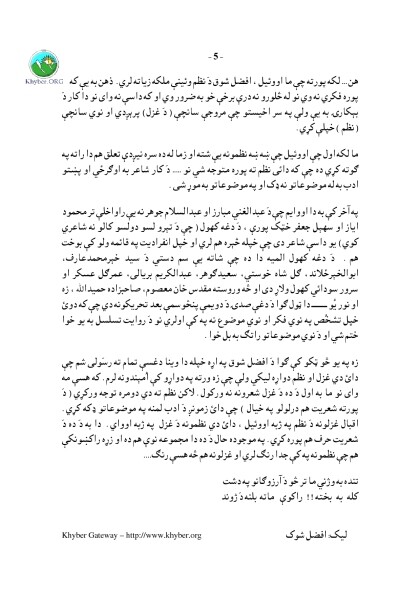 - 5 -
Khyber.ORG
هن... لکه پورته چې ما اووئيل ، افضل شوق دَ نظم وئينې ملکه زياته لري. ذهن به يې که
پوره فکري نه وي نو له څلورو نه درې برخې خو به ضرور وي او که داسې نه وای نو دا کار دَ
بېکارۍ به يې ولې په سر اخيستو چې مروجې سانچې ( دَ غزل) پرېږدي او نوي سانچې
( نظم ) خپلې کړي.
ما لکه اول چې اووئيل چې ښه ښه نظمونه يې شته او زما له ده سره نيږدې تعلق هم دا راته په
ګوته کړې ده چې که دائې نظم ته پوره متوجه شي نو .... دَ کار شاعر به اوګرځي او پښتو
ادب به له موضوعاتو نه ډک او په موضوعاتو به موړ شي.
په آخر کې به دا اووايم چې دَ عبدالغني مبارز او عبدالسلام جوهر نه يې راواخلې تر محمود
اياز او سهيل جعفر خټک پورې ، دَ دغه کهول ( چې دَ تېرو لسو دولسو کالو نه شاعري
کوي) يو داسې شاعر دی چې خپله خبره هم لري او خپل انفراديت په قائمه ولو کې بوخت
هم . دَ دغه کهول الميه دا ده چې شاته يې سم دستي دَ سيد خېرمحمدعارف،
ابوالخېرځلاند، ګل شاه خوستي، سعيدګوهر، عبدالکريم بريالی، عمرګل عسکر او
سرور سودائي کهول ولاړ دی او څه وروسته مقدس خان معصوم، صاحبزاده حميدالله ، زه
او نور يُو ــــــ دا ټول ګوا دَ دغې صدۍ دَ دويمې پنځوسمې بعد تحريکونه دي چې که دوئ
خپل تشخّص په نوي فکر او نوي موضوع نه په کې اولري نو دَ روايت تسلسل به يو خوا
ختم شي او دَ نوي موضوعاتو رانګ به بل خوا .
زه په يو څو ټکو کې ګوا دَ افضل شوق په اړه خپله دا وينا دغسې تمام ته رسَولی شم چې
دائ دې غزل او نظم دواړه ليکي ولې چې زه ورته په دواړو کې اُميندونه لرم. که هسې مه
وای نو ما به اول دَ ده دَ غزل شعرونه نه ورکول. لاکن نظم ته دې دومره توجه ورکړي ( دَ
پورته شعريت هم درلولو په خيال ) چې دائ زمونږ دَ ادب لمنه په موضوعاتو ډکه کړي.
اقبال غزلونه دَ نظم په ژبه اووئيل ، دائ دې نظمونه دَ غزل په ژبه اووای . دا به دَ ده دَ
شعريت حرف هم پوره کړي. په موجوده حال دَ ده دا مجموعه نوي هم ده او زړه راکښونکې
هم چې نظمونه په کې جدا رنګ لري او غزلونه هم څه هسې رنګ....
تنده به وژني ما تر څو دَ آرزوګانو په دشت
کله به بخته!! راکوې ماته بلنه دَ ژوند
ليک: افضل شوک
Khyber Gateway – http://www.khyber.org